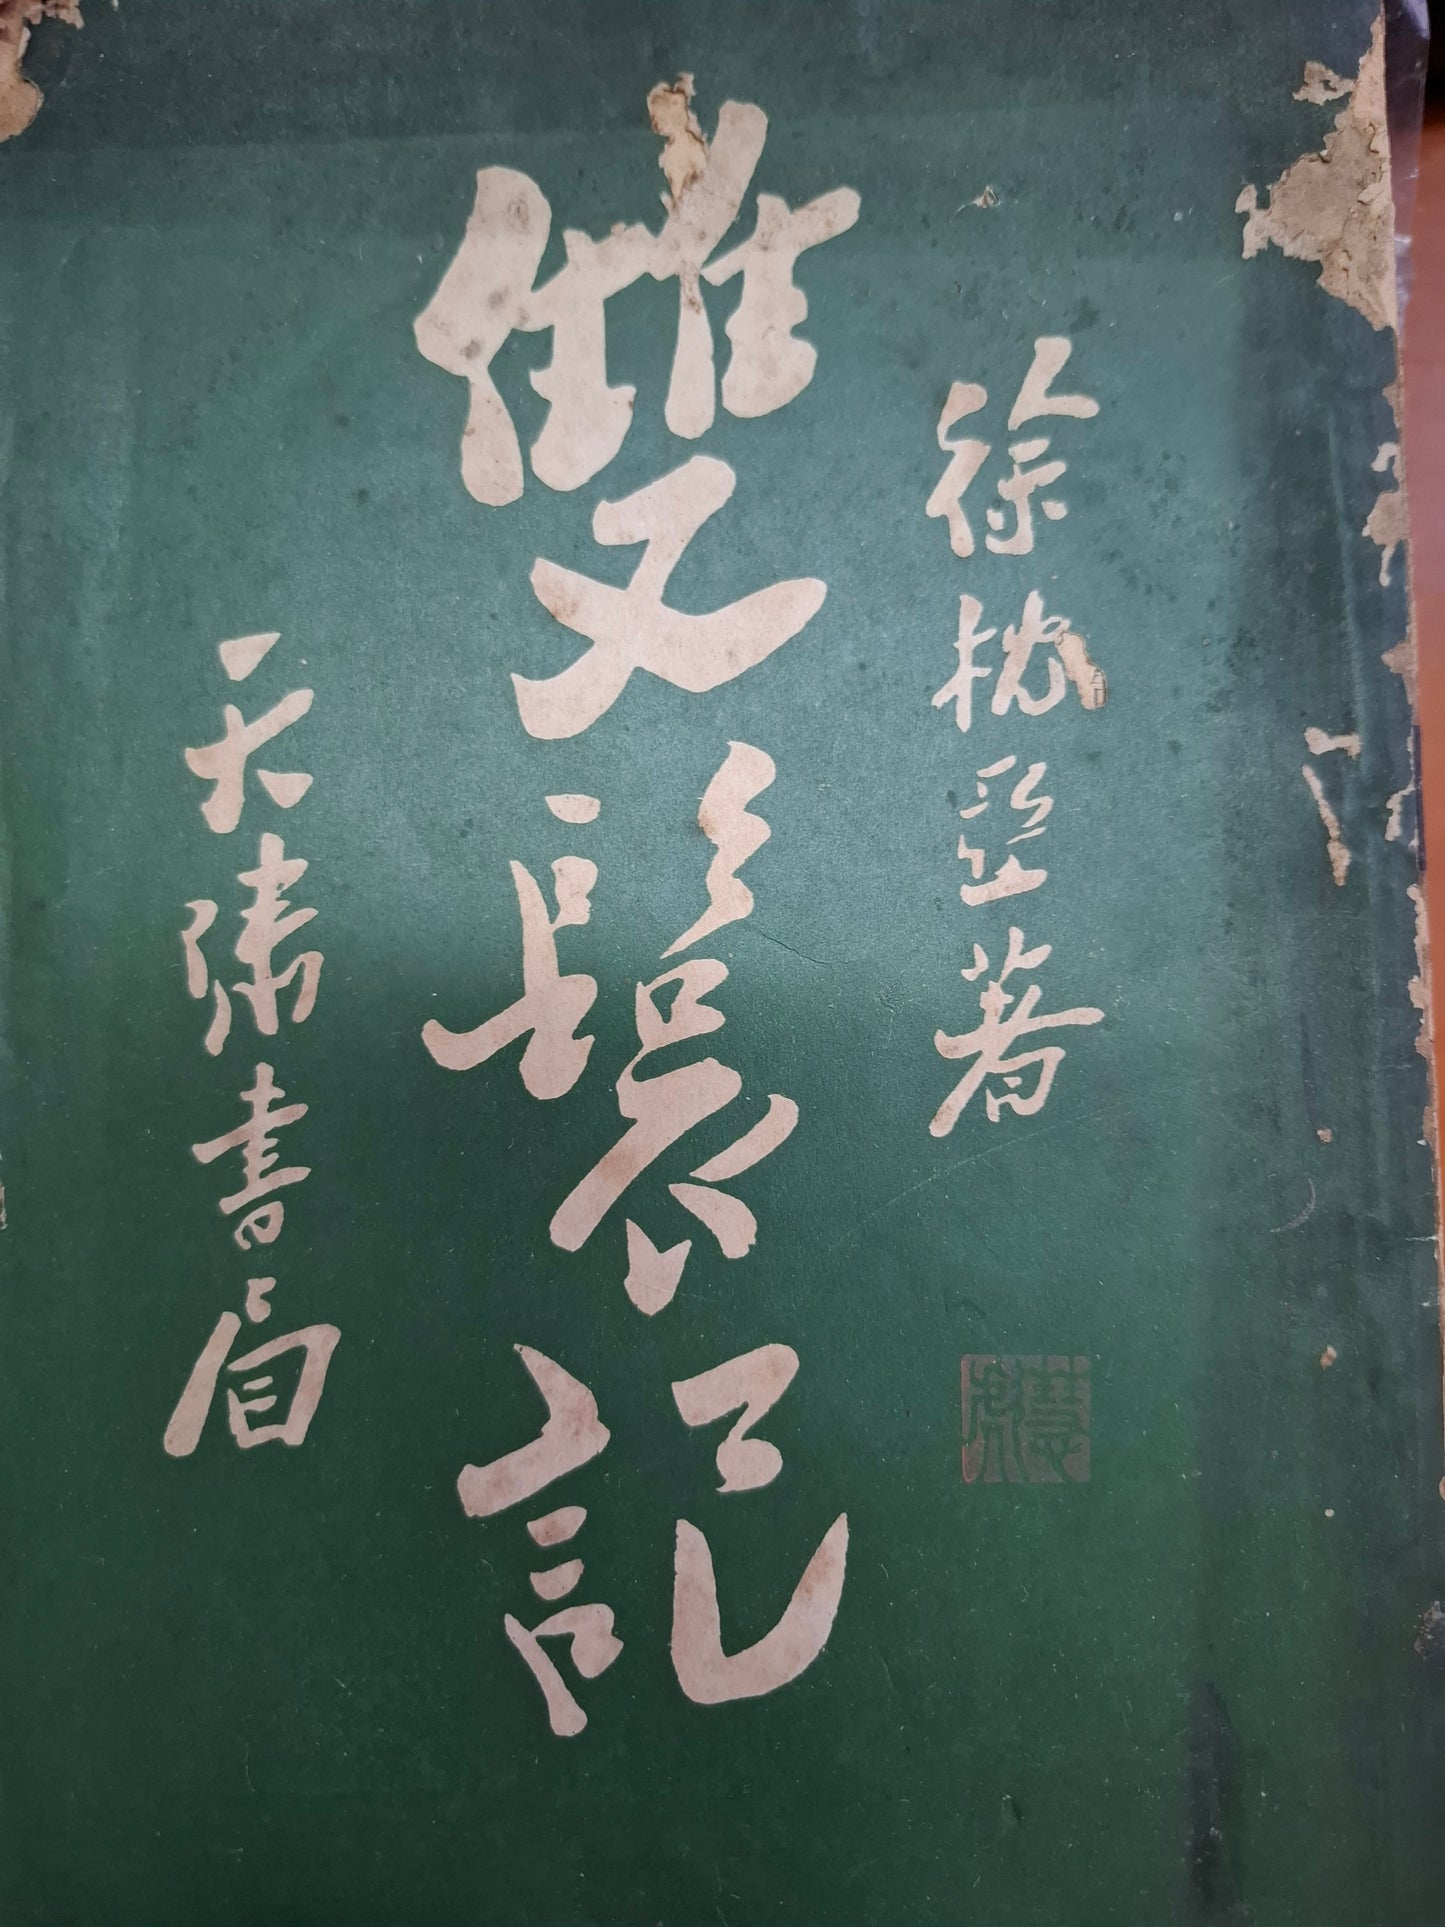 徐枕亞著
雙鬟記
天嘯書局